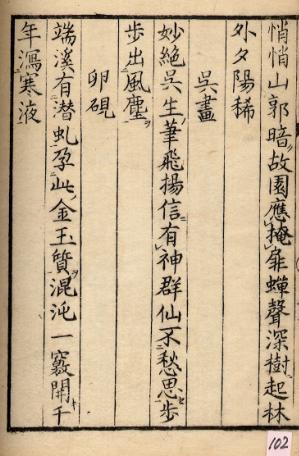 悄悄山郭暗故園應掩扉蟬聲深樹起林
外夕陽稀
吳畫
妙絕吳生筆飛揚信有神群仙不愁思步
步出風塵
卵硯
端溪有潜虬孕此金玉質混沌一竅開千
年瀉寒液
102